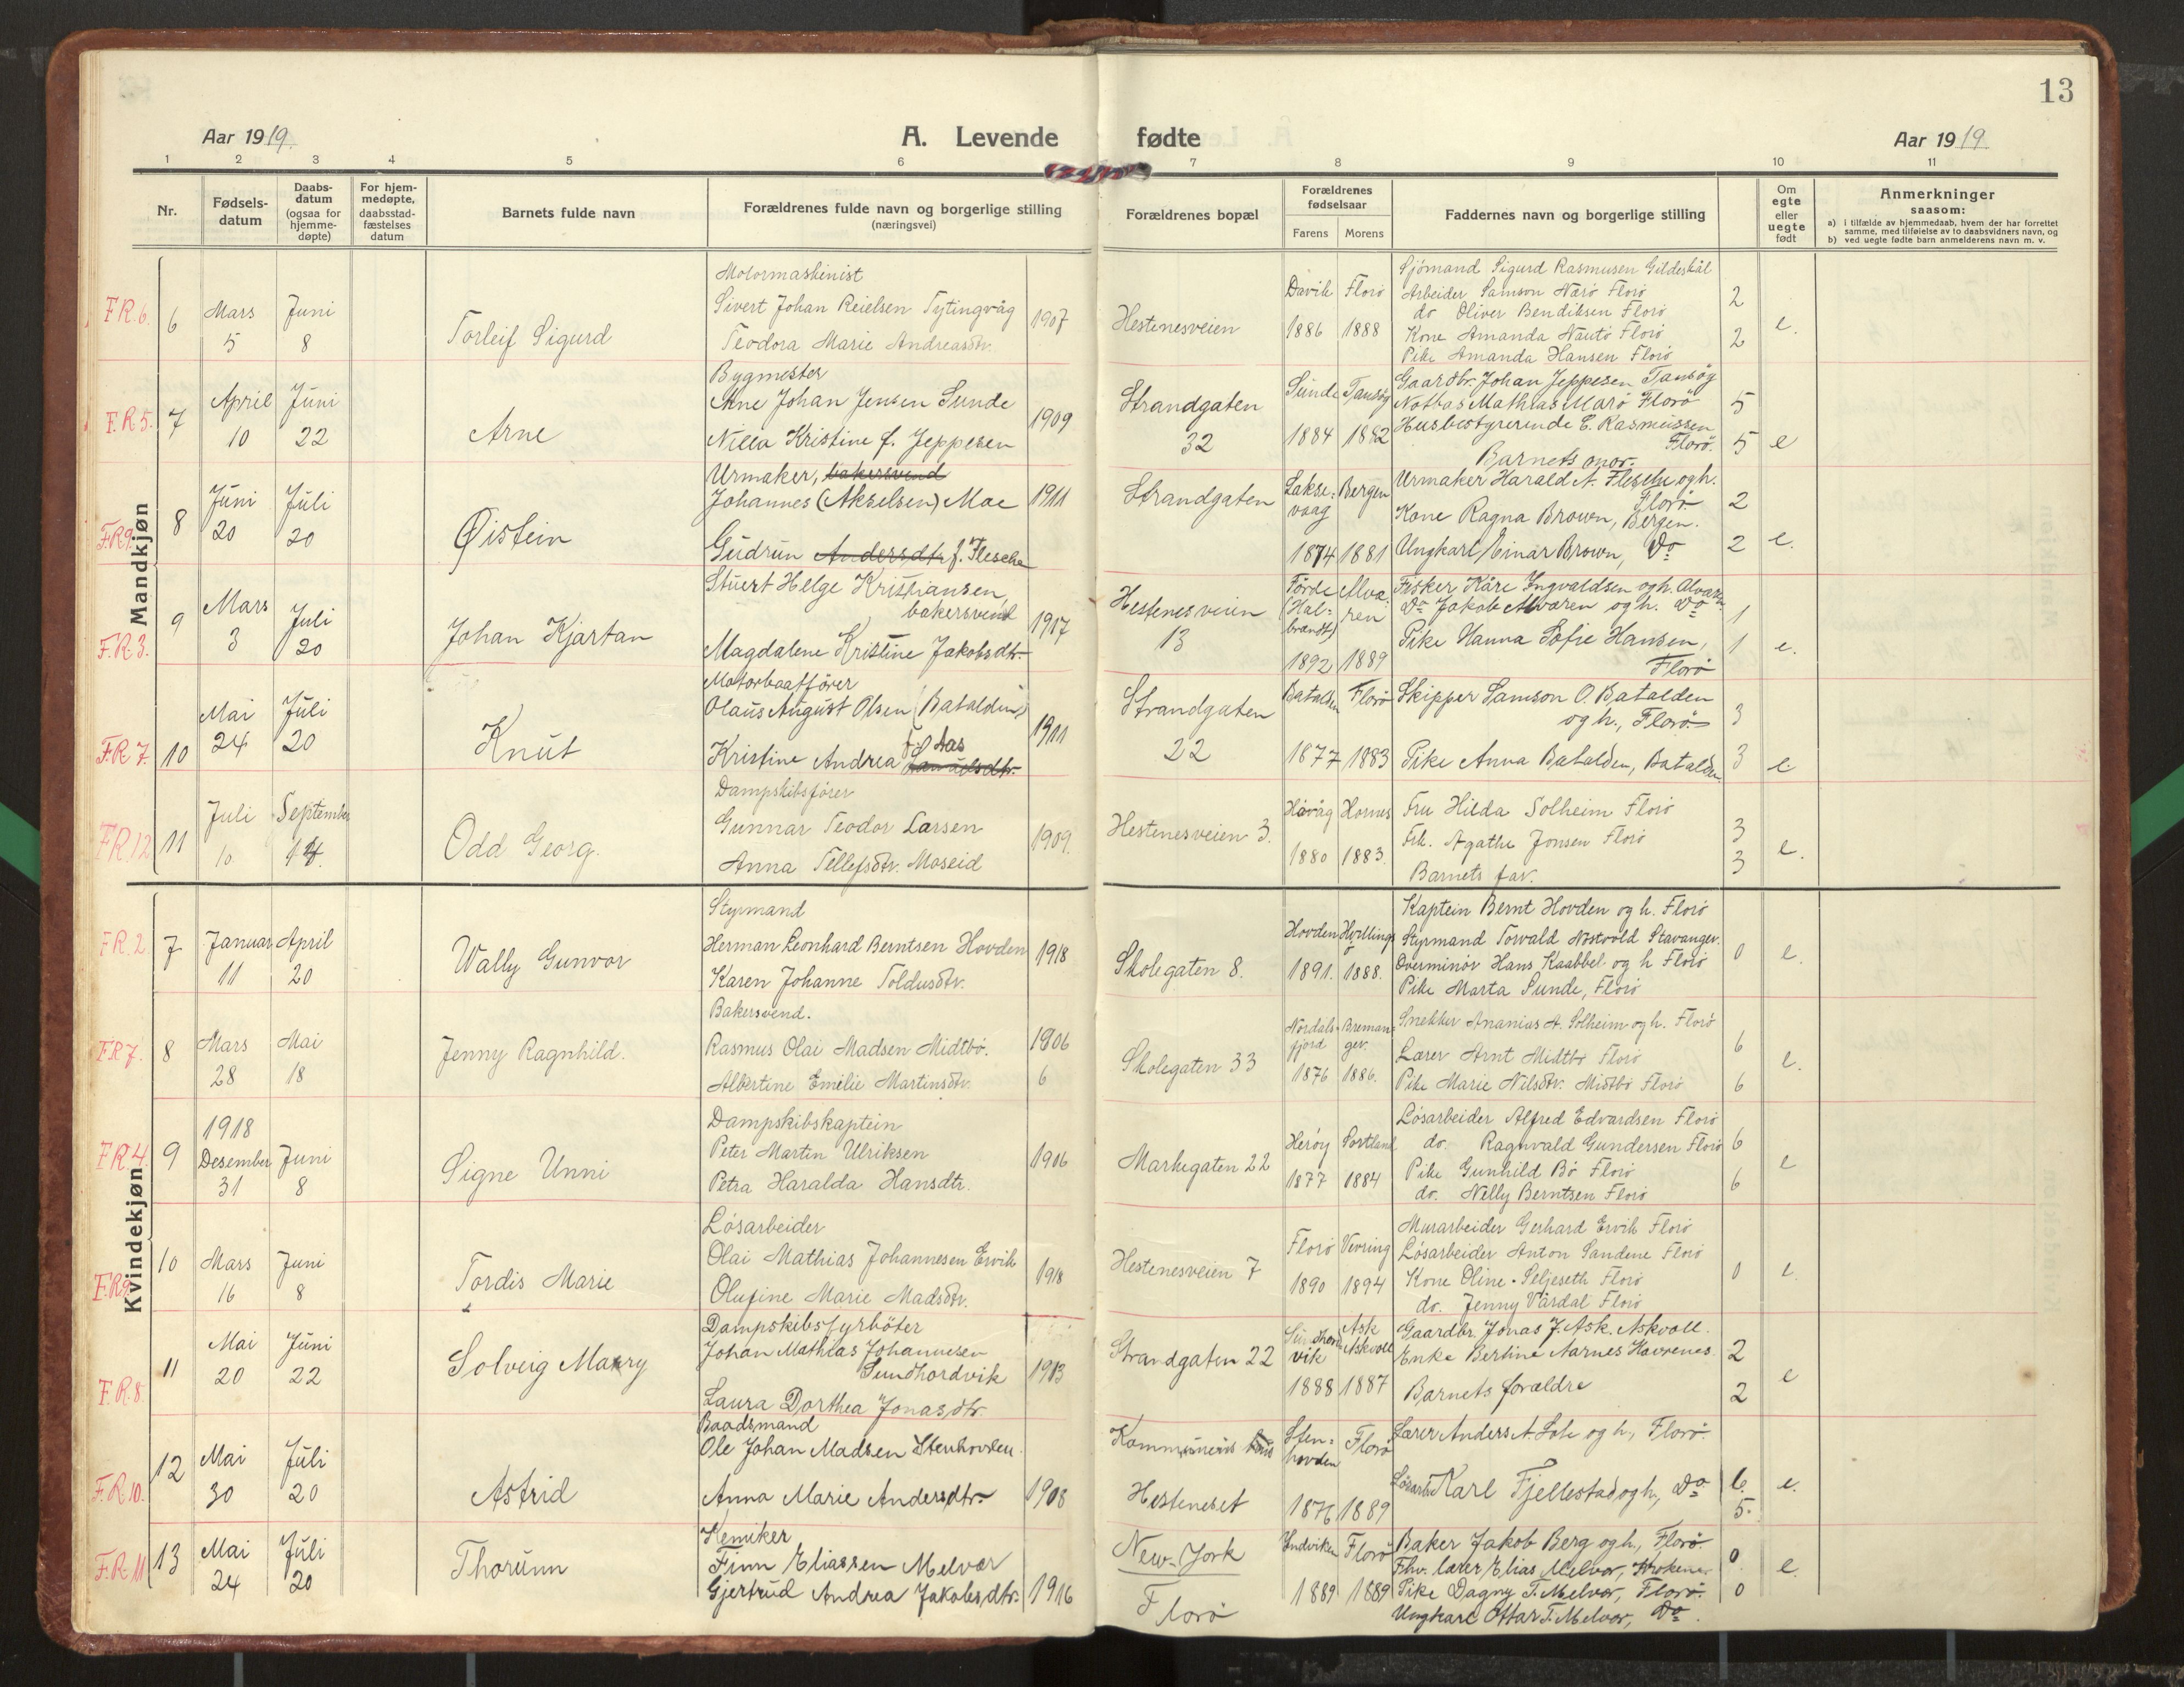 13
Aar 1919. A. Levende fødte Aar 1919.
1 2 3 4 5 6 7 8 9 10 11
Nr.
Fødsels-
datum
Daabs-
datum
(ogsaa for
hjemme-
døpte)
For hjem-
medøpte,
daabsstad-
fæstelses
datum
Barnets fulde navn
Forældrenes fulde navn og borgerlige stilling
(næringsvei)
Forældrenes bopæl
Forældrenes
fødselsaar
Farens Morens
Faddernes navn og borgerlige stilling
Om
egte
eller
uegte
født
Anmerkninger
saasom:
a) i tilfælde av hjemmedaab, hvem der har forrettet
samme, med tilføielse av to daabsvidners navn, og
b) ved uegte fødte barn anmelderens navn m. v.
Mandkjøn
F.R.6. 6 Mars 5 Juni 8
Torleif Sigurd
Motormaskinist
Sivert Johan Reielsen Tytingvåg
Teodora Marie Andreasdtr.
1907
Hestenesveien
Davik Florö
1886 1888
Sjömand Sigurd Rasmusen Gildeskål
Arbeider Samson Nærö Florö
do Oliver Bendiksen Florö
Kone Amanda Nautö Florö
Pike Amanda Hansen Florö
2
2
e.
F.R.5. 7 April 10 Juni 22
Arne
Bygmester
Arne Johan Jensen Sunde
Nilla Kristine f. Jeppesen
1909
Strandgaten
32
Sunde Tansøy
1884 1882
Gaardbr. Johan Jeppesen Tansøy
Notbas Mathias Marö Florö
Husbestyrerinde E. Rasmussen
Florö.
Barnets mor.
5
5
e
F.R.9. 8 Juni 20 Juli 20
Øistein
Urmaker, bakersvend
Johannes (Akselsen) Moe
Gudrun Andersdtr. f. Flesche
1911
Strandgaten
Lakse-
vaag
Bergen
1874 1881
Urmaker Harald A. Flesche og h.
Florö
Kone Ragna Brown, Bergen.
Ungkarl Einar Brown, Do
2
2
e.
F.R.3. 9 Mars 3 Juli 20
Johan Kjartan
Stuert Helge Kristiansen,
bakersvend
Magdalene Kristine Jakobsdtr.
1917
Hestenesveien
13
Førde
(Hal-
brendt)
Alva-
ren
1892 1889
Fisker Kåre Ingvaldsen og h. Alvaren
Do Jakob Alvaren og h. Do
Pike Hanna Sofie Hansen,
Florö
1
1
e.
F.R.7. 10 Mai 24 Juli 20
Knut
Motorbaatfører
Olaus August Olsen (Batalden)
Kristine Andrea
1911
Strandgaten
22
Batalden Florö
1877 1883
Skipper Samson O. Batalden
og h., Florö
Pike Anna Batalden, Batalden
3
3
e
F.R.12 11 Juli 10 September 14.
Odd Georg.
Dampskibsfører
Gunnar Teodor Larsen
Anna Tellefsdtr. Moseid
1909.
Hestenesveien 3.
Høvåg Hornes
1880 1883.
Fru Hilda Solheim Florö
Frk. Agathe Jonsen Florö
Barnets far.
3
3
e.
Kvindekjøn
F.R.2 7 Januar 11 April 20
Wally Gunvor
Styrmand
Herman Leonhard Berntsen Hovden
Karen Johanne Toldusdtr.
1918
Skolegaten 8.
Hovden
1891. 1888.
Kaptein Bernt Hovden og h. Florö
Styrmand Torvald Nostvold Stavanger.
Overminör Hans Kaabbel og h Florö
Pike Marta Sunde, Florö
0
e.
F.R.7. 8 Mars 28 Mai 18
Jenny Ragnhild.
Bakersvend.
Rasmus Olai Madsen Midtbö.
Albertine Emilie Martinsdtr.
1906
6
Skolegaten 33
Nordals-
fjord
Breman-
ger.
1876 1886.
Snekker Ananias A. Solheim og h. Florö
Lærer Arnt Midtbö Florö
Pike Marie Nilsdtr. Midtbö Florö
6
6
e.
F.R.4. 9 1918 Desember 31 Juni 8
Signe Unni
Dampskibskaptein
Peter Martin Ulriksen
Petra Haralda Hansdtr.
1906
Markegaten 22
Herøy Sortland
1877 1884
Lösarbeider Alfred Edvardsen Florö
do. Ragnvald Gundersen Florö
Pike Gunhild Bö Florö
do. Nelly Berntsen Florö
6
6
e
F.R.9. 10 Mars 16 Juni 8
Tordis Marie
Lösarbeider
Olai Mathias Johannesen Ervik
Olufine Marie Madsdtr.
1918
Hestenesveien 7
Florö Vevring
1890 1894
Murarbeider Gerhard Ervik Florö
Lösarbeider Anton Sandene Florö
Kone Oline Seljeseth Florö
do. Jenny Vårdal Florö
0
e
F.R.8. 11 Mai 20 Juni 22
Solveig Marry
Dampskibsfyrböter
Johan Mathias Johannesen
Sundhordvik
Laura Dorthea Jonasdtr.
1913
Strandgaten 22
Sundhord
vik
Ask
Askvoll
1888 1887
Gaardbr. Jonas J. Ask. Askvoll.
Enke Bertine Aarnes Havrenes.
Barnets forældre
2
2
e
F.R.10. 12 Mai 30 Juli 20
Astrid
Baadsmand
Ole Johan Madsen Stenhovden.
Anna Marie Andersdtr.
1908
Kommunens hus
Hesteneset
Sten-
hovden
Florö
1876 1889
Lærer Anders A. Lote og h., Florö.
Løsarb. Karl Fjellestad og h., Do
6
5.
e.
F.R.11 13 Mai 24 Juli 20
Thorunn
Kemiker
Finn Eliassen Melvær
Gjertrud Andrea Jakobsdtr.
1916
New-York
Florö
Indviken Florö
1889 1889
Baker Jakob Berg og h., Florö
Fhv. lærer Elias Melvær,
Pike Dagny T. Melvær, Florö.
Ungkarl Ottar T. Melvær, Do.
0
0
e.